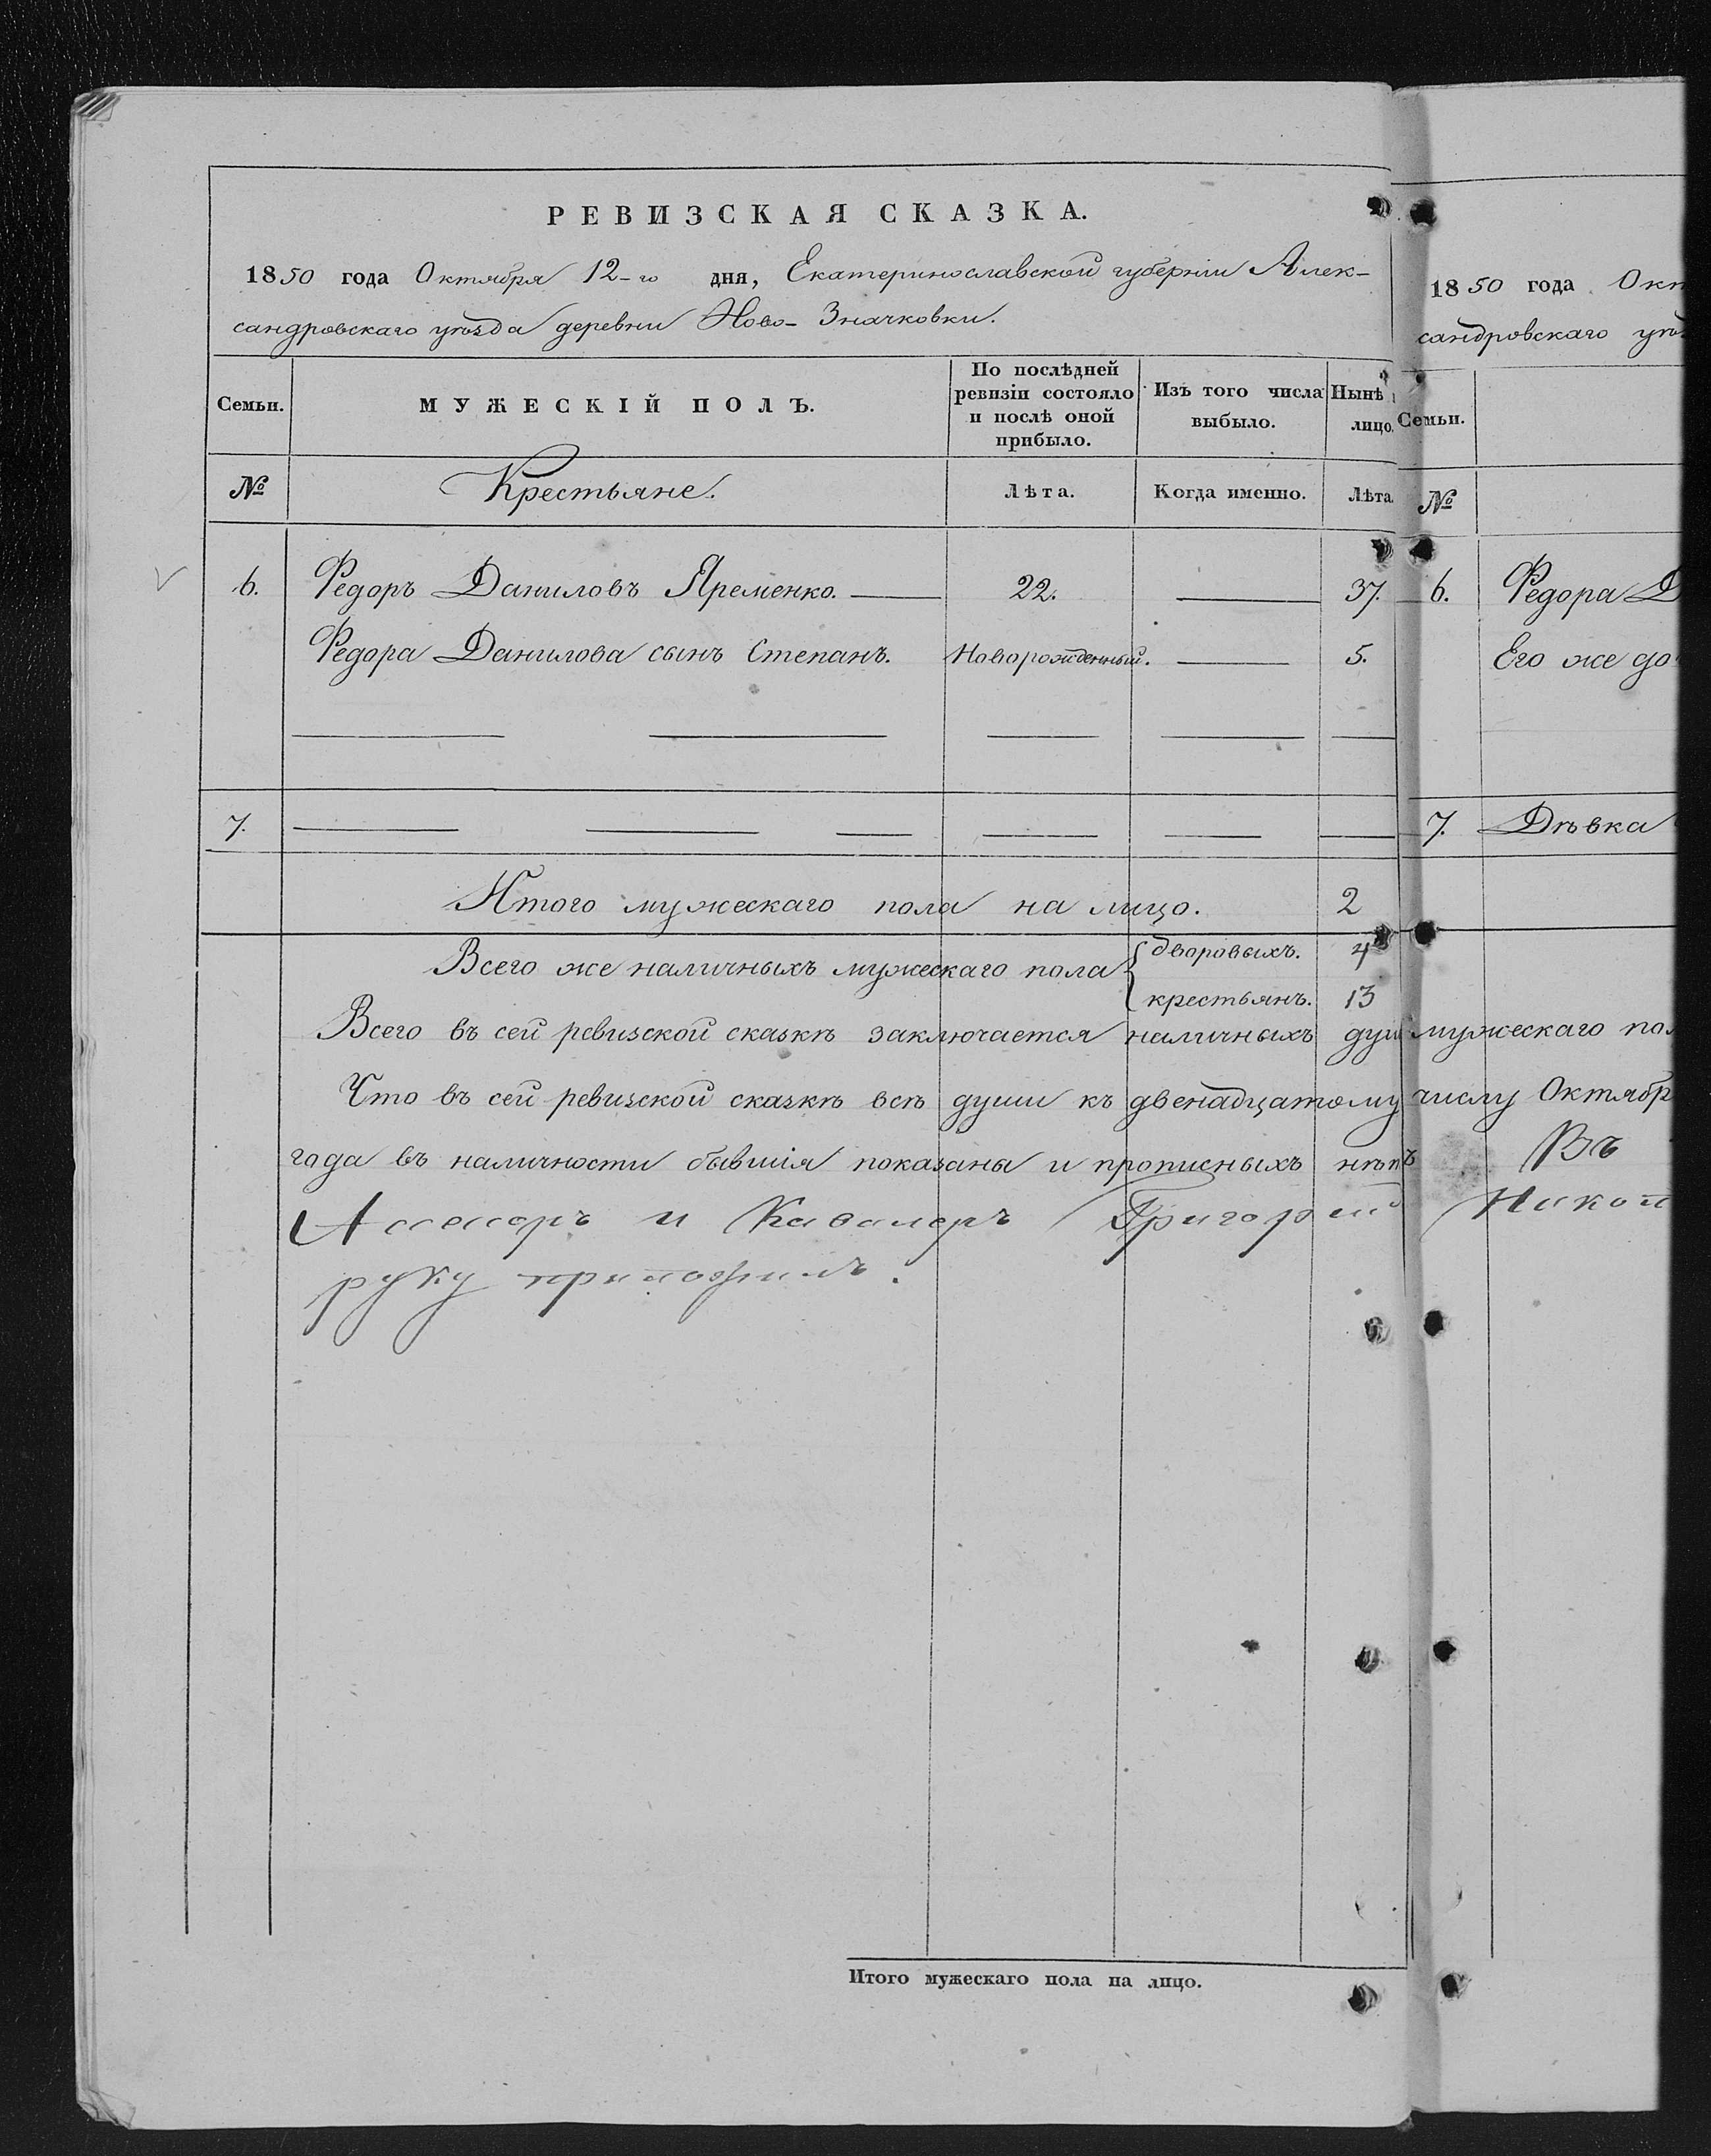 РЕВИЗСКАЯ СКАЗКА.
1850 года Октября 12-го дня, Екатеринославской губерніи Алек-
сандровскаго уѣзда деревни Ново-Значковки.
Семьи. МУЖЕСКІЙ ПОЛЪ. По послѣдней ревизіи состояло и послѣ оной прибыло. Изъ того числа выбыло. Нынѣ лицо.
№ Крестьяне. Лѣта. Когда именно. Лѣта
6. Ѳедоръ Даниловъ Яременко. 22. 37.
Ѳедора Данилова сынъ Степанъ. Новорожденный. 5.
7.
Итого мужескаго пола на лицо. 2
Всего же наличныхъ мужескаго пола дворовыхъ. 4
крестьянъ. 13
Всего въ сей ревизской сказкѣ заключается наличныхъ душ мужескаго пол
Что въ сей ревизской сказкѣ всѣ души къ двенадцатому числу Октябр
года въ наличности бывшія показаны и прописныхъ нѣтъ Въ
Асессоръ и Кавалеръ Григорій
руку приложилъ.
Итого мужескаго пола на лицо.
1850 года Окт
сандровскаго уѣз
Семьи.
№
6. Ѳедора Д
Его же до
7. Дѣвка